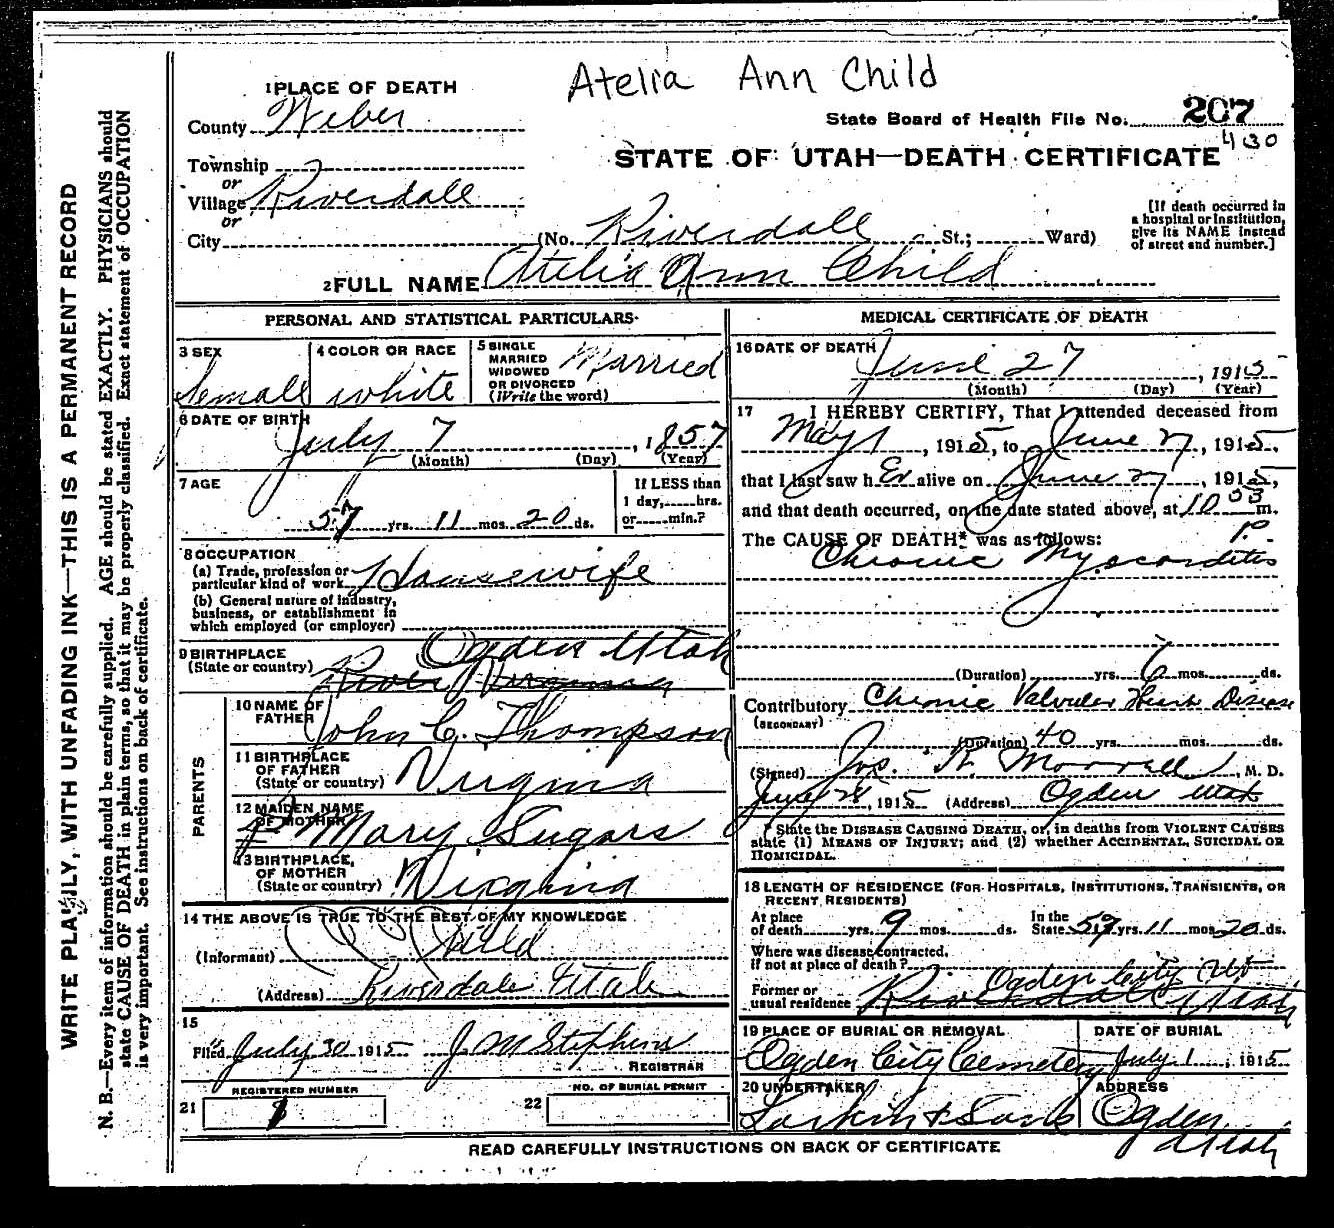 Atelia Ann Child
1 PLACE OF DEATH
County Weber
State Board of Health File No. 207
430
Township
or
Village Riverdale
or
City
STATE OF UTAH—DEATH CERTIFICATE
(No. Riverdale St.; Ward)
[If death occurred in
a hospital or institution,
give its NAME instead
of street and number.]
2 FULL NAME Atelia Ann Child
PERSONAL AND STATISTICAL PARTICULARS
3 SEX
female
4 COLOR OR RACE
white
5 SINGLE
MARRIED
WIDOWED
OR DIVORCED
(Write the word)
Married
6 DATE OF BIRTH
July 7, 1857
(Month) (Day) (Year)
7 AGE
57 yrs. 11 mos. 20 ds.
If LESS than
1 day, hrs.
or min.?
8 OCCUPATION
(a) Trade, profession or
particular kind of work Housewife
(b) General nature of industry,
business, or establishment in
which employed (or employer)
9 BIRTHPLACE
(State or country)
Ogden Utah
10 NAME OF
FATHER
John C. Thompson
11 BIRTHPLACE
OF FATHER
(State or country)
Virginia
12 MAIDEN NAME
OF MOTHER
Mary Sugars
13 BIRTHPLACE,
OF MOTHER
(State or country)
Virginia
PARENTS
14 THE ABOVE IS TRUE TO THE BEST OF MY KNOWLEDGE
(Informant) Child
(Address) Riverdale Utah
15
Filed July 30 1915 J M Stephens
REGISTRAR
REGISTERED NUMBER
21 1
NO. OF BURIAL PERMIT
22
MEDICAL CERTIFICATE OF DEATH
16 DATE OF DEATH
June 27, 1915
(Month) (Day) (Year)
17 I HEREBY CERTIFY, That I attended deceased from
May 1, 1915, to June 27, 1915,
that I last saw h Er alive on June 27, 1915,
and that death occurred, on the date stated above, at 10 53 P. m.
The CAUSE OF DEATH* was as follows:
Chronic Myocarditis
(Duration) yrs. 6 mos. ds.
Contributory Chronic Valvular Heart Disease
(SECONDARY)
(Duration) 40 yrs. mos. ds.
(Signed) Jos. R. Morrell, M. D.
28, 1915 (Address) Ogden Utah
* State the DISEASE CAUSING DEATH, or, in deaths from VIOLENT CAUSES
state (1) MEANS OF INJURY; and (2) whether ACCIDENTAL, SUICIDAL OR
HOMICIDAL.
18 LENGTH OF RESIDENCE (FOR HOSPITALS, INSTITUTIONS, TRANSIENTS, OR
RECENT RESIDENTS)
At place
of death yrs. 9 mos. ds.
In the
State 57 yrs. 11 mos 20 ds.
Where was disease contracted,
if not at place of death?
Former or
usual residence
Ogden City Ut
Riverdale Utah
19 PLACE OF BURIAL OR REMOVAL
Ogden City Cemetery
DATE OF BURIAL
July 1, 1915
20 UNDERTAKER
Larkin & Sons
ADDRESS
Ogden
Utah
READ CAREFULLY INSTRUCTIONS ON BACK OF CERTIFICATE
WRITE PLAINLY, WITH UNFADING INK—THIS IS A PERMANENT RECORD
N. B.—Every item of information should be carefully supplied. AGE should be stated EXACTLY. PHYSICIANS should
state CAUSE OF DEATH in plain terms, so that it may be properly classified. Exact statement of OCCUPATION
is very important. See instructions on back of certificate.